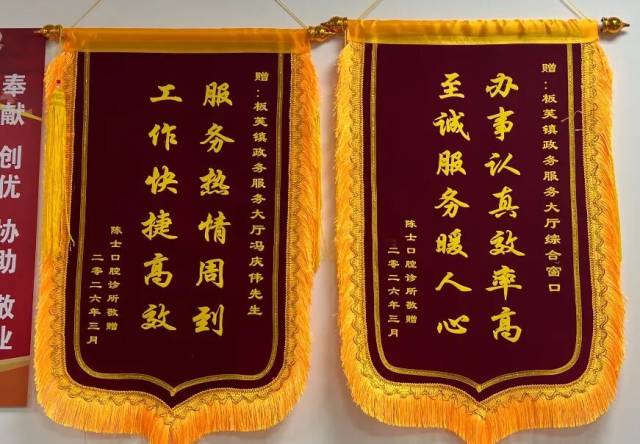 奉献 创优 协助 敬业
赠：板芙镇政务服务大厅冯庆伟先生
服务热情周到
工作快捷高效
陈士口腔诊所敬赠
二零二六年三月
赠：板芙镇政务服务大厅综合窗口
办事认真效率高
至诚服务暖人心
陈士口腔诊所敬赠
二零二六年三月